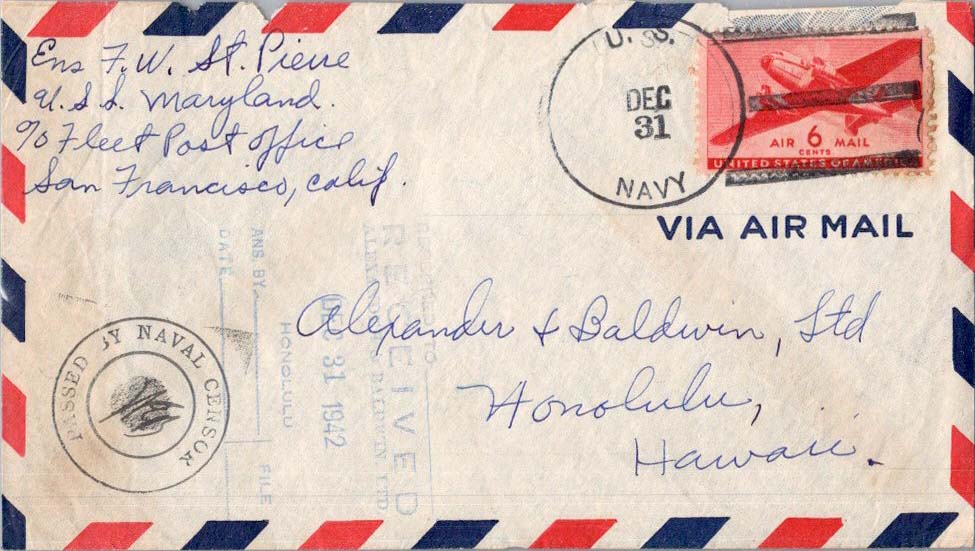 Ens F. W. St. Pierre
U.S.S. Maryland.
c/o Fleet Post office
San Francisco, Calif.
U. S.
DEC
31
NAVY
AIR 6 MAIL
CENTS
UNITED STATES OF AMERICA
VIA AIR MAIL
Alexander & Baldwin, Ltd
Honolulu,
Hawaii.
PASSED BY NAVAL CENSOR
RECEIVED
ALEXANDER & BALDWIN, LTD.
DEC 31 1942
HONOLULU
ANS. BY
FILE
DATE